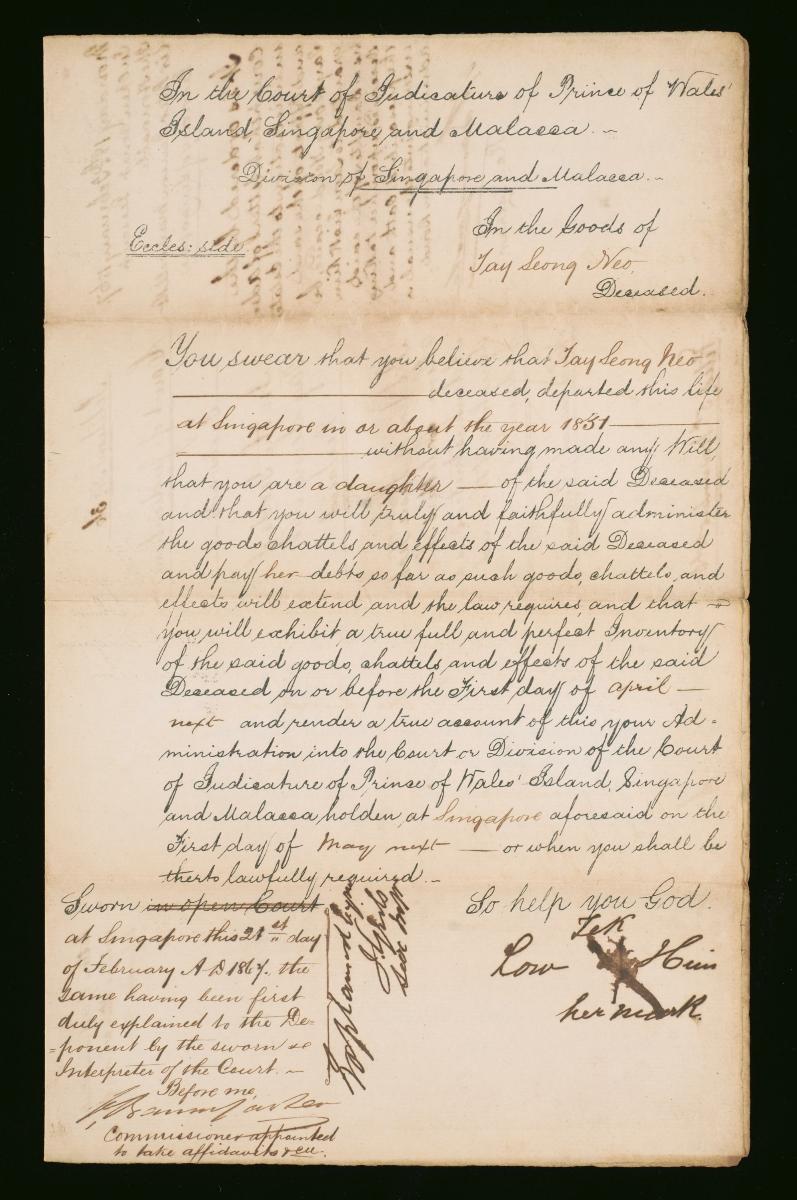 In the Court of Judicature of Prince of Wales'
Island, Singapore and Malacca.~
Division of Singapore and Malacca.~
Eccles: side.
In the Goods of
Tay Seong Neo
Deceased.
You swear that you believe that Tay Seong Neo
deceased, departed this life
at Singapore in or about the year 1851
without having made any Will,
that you are a daughter — of the said Deceased
and that you will truly and faithfully administer
the goods chattels and effects of the said Deceased
and pay her debts so far as such goods, chattels, and
effects will extend and the law requires, and that
you will exhibit a true full and perfect Inventory
of the said goods, chattels and effects of the said
Deceased on or before the First day of april —
next and render a true account of this your Ad-
ministration into the Court or Division of the Court
of Judicature of Prince of Wales' Island, Singapore
and Malacca holden at Singapore aforesaid on the
First day of May next — or when you shall be
therto lawfully required.~
So help you God.
Sworn in open Court
at Singapore this 21st day
of February A D 1867. the
same having been first
duly explained to the De-
=ponent by the sworn
Interpreter of the Court.~
Before me,
Commissioner appointed
to take affidavits &ca.
Explained by me
Tek
Low Him
her mark.